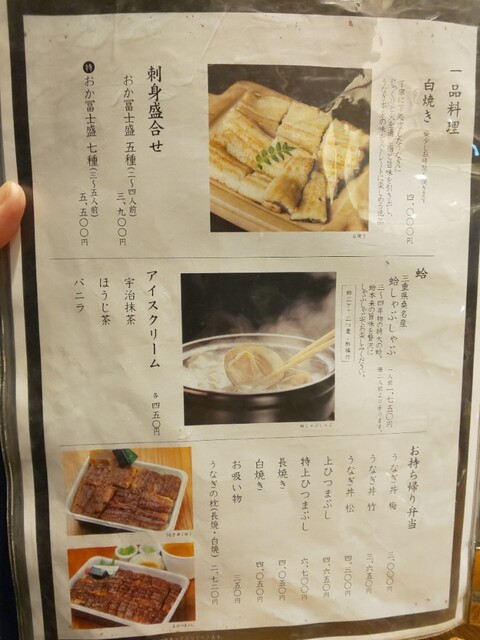 一品料理
白焼き
四、〇〇〇円
刺身盛合せ
おか冨士盛 五種(二〜四人前)
三、九〇〇円
特 おか冨士盛 七種(三〜五人前)
五、五〇〇円
蛤
三重県桑名産
蛤しゃぶしゃぶ
一人前 一、七五〇円
三〜四年物の特大の蛤。
蛤本来の旨味を贅沢に
しゃぶしゃぶでお楽しみください。
アイスクリーム
各 四五〇円
宇治抹茶
ほうじ茶
バニラ
お持ち帰り弁当
うなぎ丼 梅
三、〇〇〇円
うなぎ丼 竹
三、六五〇円
うなぎ丼 松
四、三〇〇円
上ひつまぶし
四、六五〇円
特上ひつまぶし
六、七〇〇円
長焼き
四、〇五〇円
白焼き
四、〇五〇円
お吸い物
三五〇円
うなぎの枕(長焼・白焼)
二、七二〇円